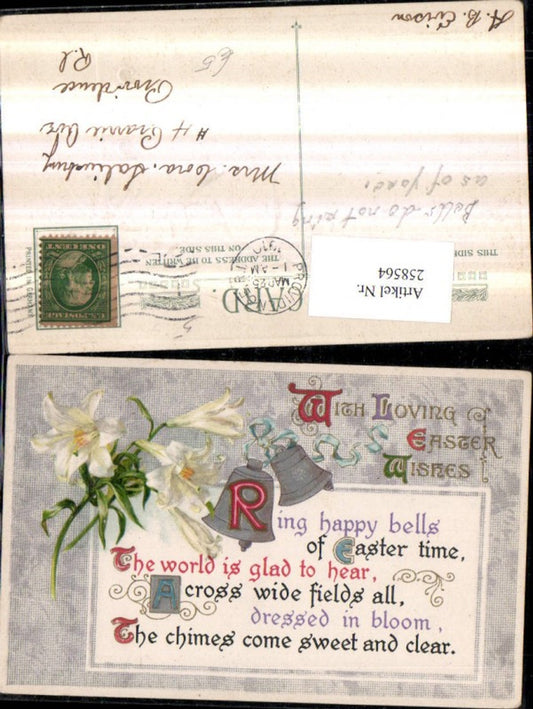 A. B.
Mrs. Cora. Salisbury
# 4 Prairie Ave
Providence
R.I.
£5
Bells do not ring
as of yore.
THIS SIDE
THE ADDRESS TO BE WRITTEN
ON THIS SIDE.
CARD
PRINTED IN GERMANY
MAR 25
1 - AM
1910
U.S. POSTAGE
ONE CENT
Artikel Nr.
258564
With Loving
Easter
Wishes
Ring happy bells
of Easter time,
The world is glad to hear,
Across wide fields all,
dressed in bloom,
The chimes come sweet and clear.